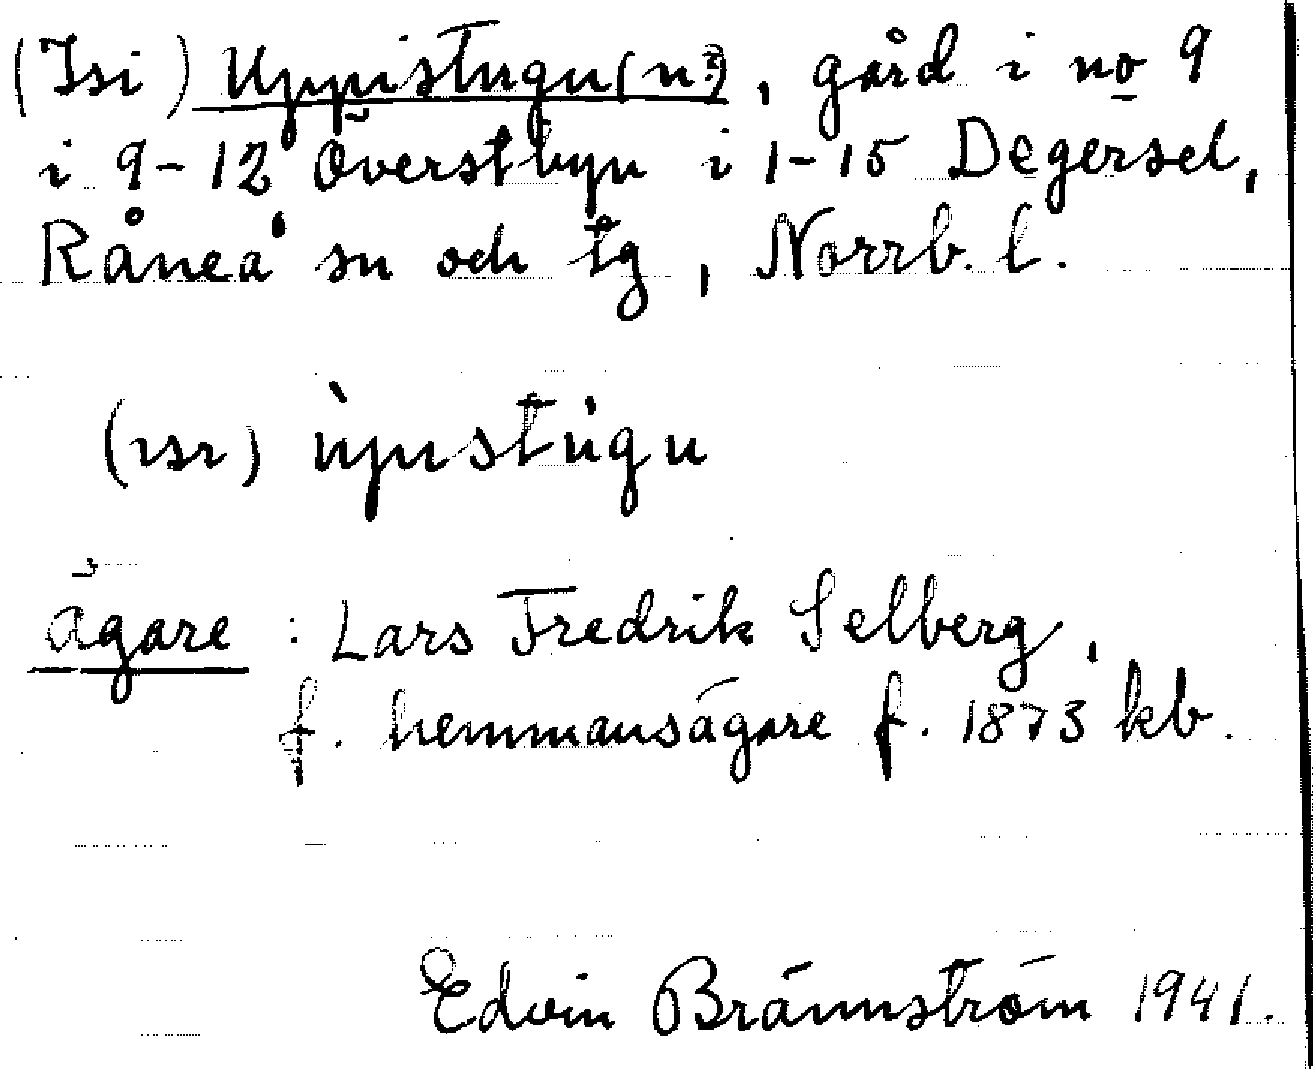 (Isi) Uppistugu(n?), gård i no 9
i 9-12 Överstbyn i 1-15 Degersel,
Råneå sn och tg, Norrb. l.
(ısı) ùpıstúgu
ägare: Lars Fredrik Selberg,
f. hemmansägare f. 1873 kb.
Edvin Brännström 1941.